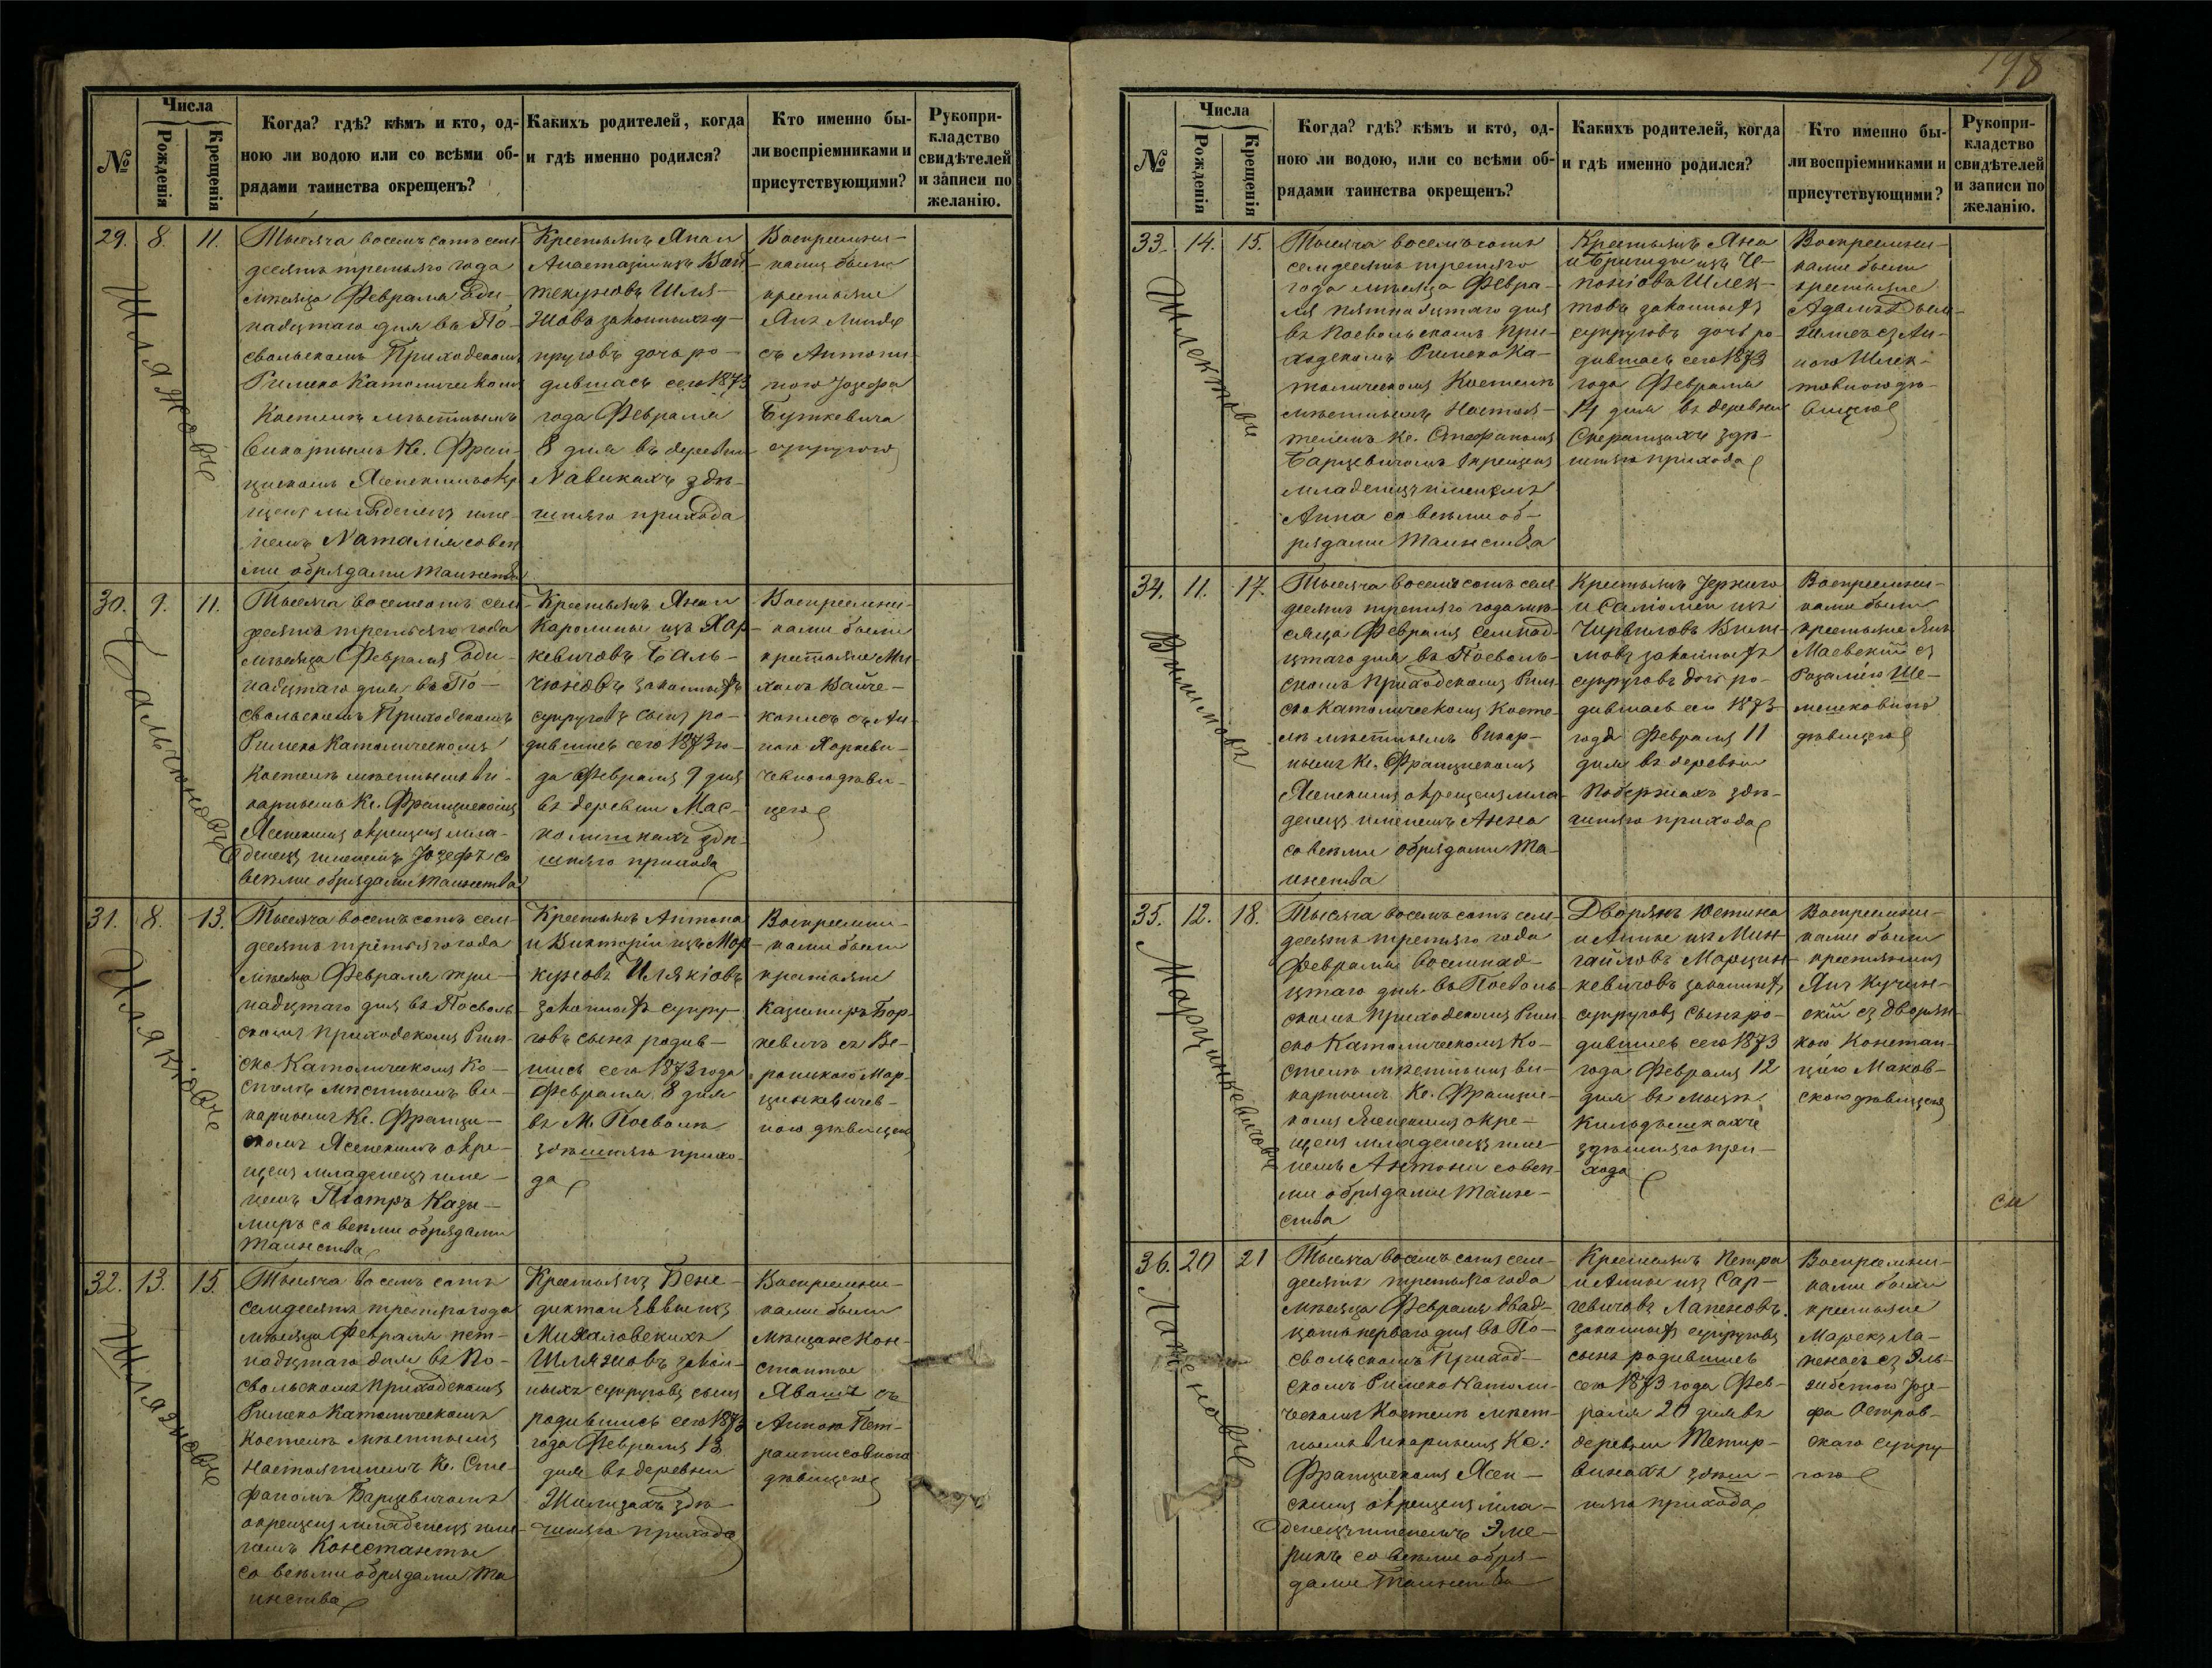 198
Числа
№
Рожденія
Крещенія
Когда? гдѣ? кѣмъ и кто, од-
ною ли водою или со всѣми об-
рядами таинства окрещенъ?
Какихъ родителей, когда
и гдѣ именно родился?
Кто именно бы-
ли воспріемниками и
присутствующими?
Рукопри-
кладство
свидѣтелей
и записи по
желанію.
29. 8. 11.
Тысяча восемъ сотъ семь
десятъ третьяго года
мѣсяца Февраля оди-
надцтаго дня въ По-
свольскомъ Приходскомъ
Римско Католическомъ
Костелѣ мѣстнымъ
Викарнымъ Кс. Фран-
цискомъ Ясенскимъ окр
щенъ младенецъ име-
немъ Наталія совсѣ
ми обрядами таинства
Крестьянъ Яна и
Анастазіи изъ Вай-
текуновъ Шля-
жовъ законныхъ су-
пруговъ дочь ро-
дившась сего 1873
года Февраля
8 дня въ деревни
Навикахъ здѣ-
шняго прихода
Воспреемни-
ками были
крестьяне
Янъ Линде
съ Антони-
ною Іозефа
Буткевича
супругою
30. 9. 11.
Тысяча восемсотъ сем
десятъ третьяго года
мѣсяца Февраля оди-
надцтаго дня въ По-
свольскомъ Приходскомъ
Римско Католическомъ
Костелѣ мѣстнымъ ви-
карнымъ Кс. Францискомъ
Ясенскимъ окрещенъ мла-
денецъ именемъ Іозефъ со
всѣми обрядами таинства
Крестьянъ Яна и
Каролины изъ Хар-
кевичовъ Баль-
чюновъ законныхъ
супруговъ сынъ ро-
дившись сего 1873 го-
да Февраля 9 дня
въ деревни Мас-
колишкахъ здѣ-
шняго прихода
Воспреемни-
ками были
крестьяне Ми-
хаилъ Вайче-
конисъ съ Ан-
ною Харкеви-
чевною дѣви-
цею
31. 8. 13.
Иляковъ
Тысяча восемъ сотъ сем-
десятъ третьяго года
мѣсяца Февраля три-
надцтаго дня въ Посволь
скомъ Приходскомъ Рим-
ско Католическомъ Ко-
стелѣ мѣстнымъ ви-
карнымъ Кс. Франци-
скомъ Ясенскимъ окре-
щенъ младенецъ име-
немъ Піотръ Кази-
миръ со всѣми обрядами
таинства
Крестьянъ Антона
и Викторіи изъ Мор-
куновъ Иляківъ
законныхъ супру-
говъ сынъ родив-
шись сего 1873 года
Февраля 8 дня
въ М. Посволѣ
здѣшняго прихо-
да
Воспреемни-
ками были
крестьяне
Казимиръ Бор-
кевичъ съ Ве-
роникою Мар-
цинкевичев-
ною дѣвицею
32. 13. 15.
Шлязновъ
Тысяча восемъ сотъ
семдесятъ третьяго года
мѣсяца Февраля пет-
надцтаго дня въ По-
свольскомъ Приходскомъ
Римско Католическомъ
Костелѣ мѣстнымъ
Настоятелемъ Кс. Сте-
фаномъ Барцевичомъ
окрещенъ младенецъ име-
немъ Константы
со всѣми обрядами та
инства
Крестьянъ Бене-
дикта и Еввы изъ
Михаловскихъ
Шлязновъ закон-
ныхъ супруговъ сынъ
родившись сего 1873
года Февраля 13
дня въ деревни
Жилизахъ здѣ-
шняго прихода
Воспреемни-
ками были
Мѣщане Кон-
стантые
Явашъ съ
Анною Пет-
раитисовною
дѣвицею
Числа
№
Рожденія
Крещенія
Когда? гдѣ? кѣмъ и кто, од-
ною ли водою, или со всѣми об-
рядами таинства окрещенъ?
Какихъ родителей, когда
и гдѣ именно родился?
Кто именно бы-
ли воспріемниками и
присутствующими?
Рукопри-
кладство
свидѣтелей
и записи по
желанію.
33. 14. 15.
Тысяча восемъ сотъ
семдесятъ третьяго
года мѣсяца Февра-
ля пятнадцтаго дня
въ Посвольскомъ При-
ходскомъ Римско Ка-
толическомъ Костелѣ
мѣстнымъ Настоя-
телемъ Кс. Стефаномъ
Барцевичомъ окрещенъ
младенецъ именемъ
Анна со всѣми об-
рядами таинства
Крестьянъ Яна
и Бригиды изъ Че-
поніовъ Шлек-
товъ законныхъ
супруговъ дочь ро-
дившась сего 1873
года Февраля
14 дня въ деревни
Сперанцахъ здѣ-
шняго прихода
Воспреемни-
ками были
крестьяне
съ Ан-
ною Шлек-
товною дѣ-
вицею
34. 11. 17.
Тысяча восемъ сотъ сем
десятъ третьяго года мѣ-
сяца Февраля семнад-
цтаго дня въ Посволь-
скомъ Приходскомъ Рим-
ско Католическомъ Косте-
лѣ мѣстнымъ викар-
нымъ Кс. Францискомъ
Ясенскимъ окрещенъ мла-
денецъ именемъ Анна
со всѣми обрядами та-
инства
Крестьянъ Іержего
и Саломеи изъ
Чирвиловъ Вили-
мовъ законныхъ
супруговъ дочь ро-
дившась сего 1873
года Февраля 11
дня въ деревни
Побержахъ здѣ-
шняго прихода
Воспреемни-
ками были
крестьяне Янъ
Маевскій съ
Розаліею Ше-
мешковною
дѣвицею
35. 12. 18.
Марцинкевичовъ
Тысяча восемъ сотъ сем
десятъ третьяго года
Февраля восемнад-
цтаго дня въ Посволь
скомъ Приходскомъ Рим
ско Католическомъ Ко-
стелѣ мѣстнымъ ви-
карнымъ Кс. Францис-
комъ Ясенскимъ окре-
щенъ младенецъ име-
немъ Антони со всѣ-
ми обрядами таин-
ства
Дворянъ Юстина
и Анны изъ Мин-
гайловъ Марцин-
кевичовъ законныхъ
супруговъ сынъ ро-
дившись сего 1873
года Февраля 12
дня въ мызѣ
Кильдишкахъ
здѣшняго при-
хода
Воспреемни-
ками были
крестянинъ
Янъ Кучин-
скій съ дворян-
кою Констан-
ціею Маков-
скою дѣвицею
см
36. 20 21
Лапеновъ
Тысяча восемъ сотъ сем
десятъ третьяго года
мѣсяца Февраля двад-
цать перваго дня въ По-
свольскомъ Приход-
скомъ Римско Католи-
ческомъ Костелѣ мѣст-
нымъ викарнымъ Кс:
Францискомъ Ясен-
скимъ окрещенъ мла-
денецъ именемъ Эме-
рикъ со всѣми обря-
дами таинства
Крестьянъ Петра
и Анны изъ Сар-
гевичовъ Лапеновъ
законныхъ супруговъ
сынъ родившись
сего 1873 года Фев-
раля 20 дня въ
деревни Тетир-
винахъ здѣш-
няго прихода
Воспреемни-
ками были
крестьяне
Марекъ Ла-
пенасъ съ Эль-
жбетою Іозе-
фа Остров-
скаго супру
гою